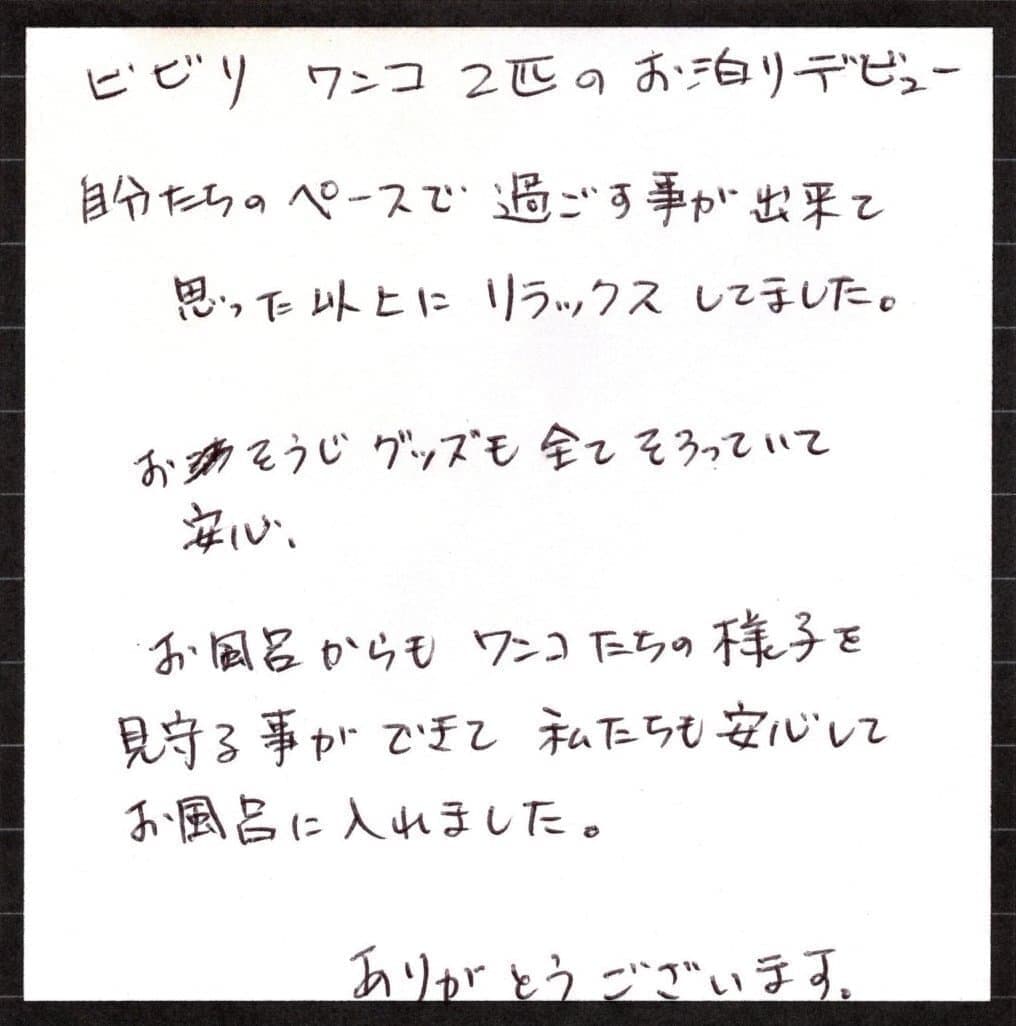 ビビリ ワンコ 2匹のお泊りデビュー
自分たちのペースで 過ごす事が出来て
思った以上に リラックス してました。
おそうじ グッズも 全て そろっていて
安心、
お風呂からも ワンコたちの 様子を
見守る事が できて 私たちも安心して
お風呂に 入れました。
ありがとうございます。